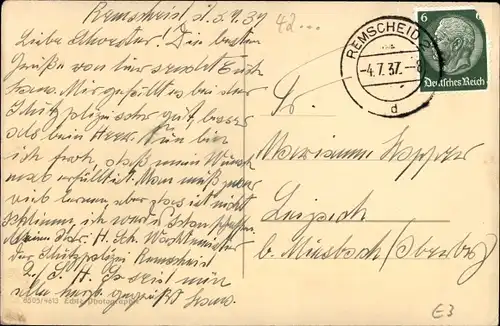 Remscheid d. 3.7.37
42...
Liebe Schwester! Die besten
Grüße von hier sendet Euch
Hans. Mir gefällt es bei der
Schutzpolizei sehr gut, besser
als beim Heer. Nun bin
ich froh, daß mein Wunsch
erfüllt. Man muß zwar
viel lernen aber das ist nicht
schlimm, ich werde es schon schaffen.
Meine Adr. H. Sch. Wachtmeister
der Schutzpolizei Remscheid
seid nun
alle herzl. gegrüßt Hans.
8505/4613 Echte Photographie
REMSCHEID
-4.7.37.-8
d
6 6
Deutsches Reich
Fr.
Marianne
b. Miesbach (Oberby)
E3